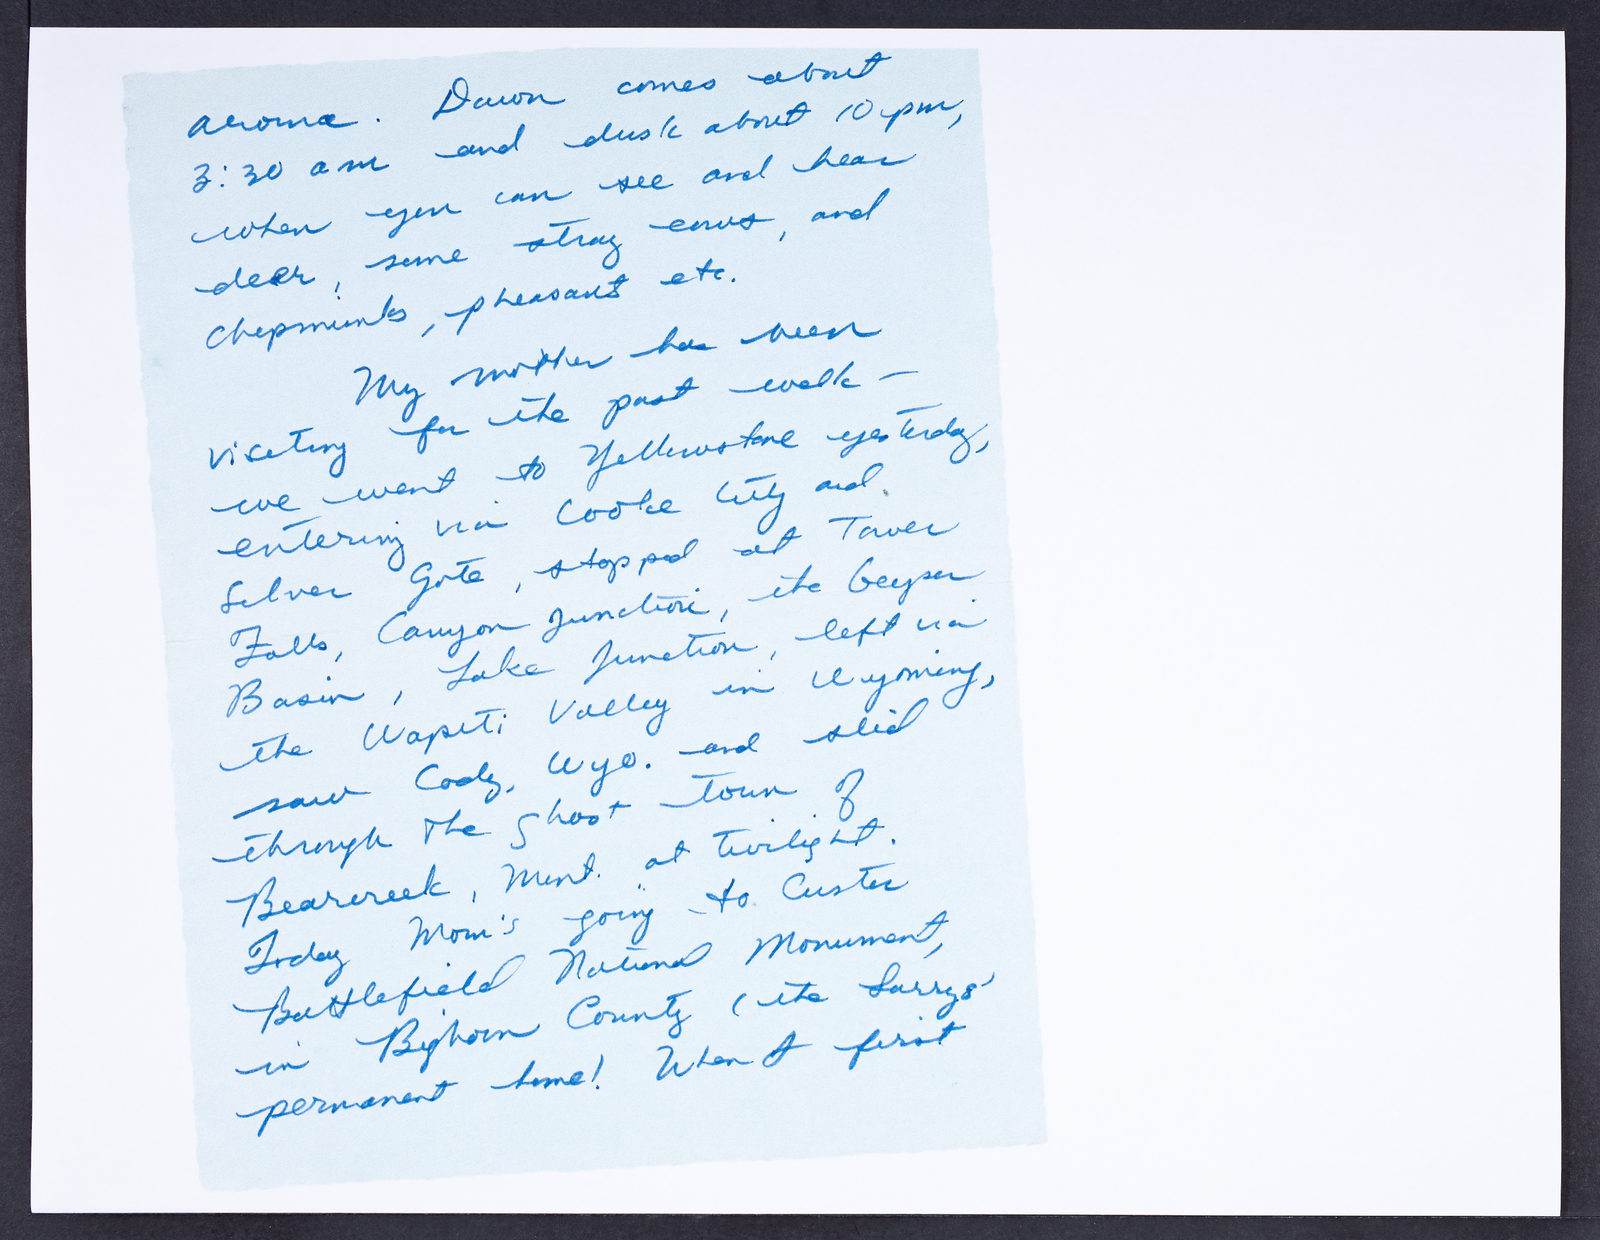 aroma. Dawn comes about
3:30 am and dusk about 10 pm,
when you can see and hear
deer, some stray cows, and
chipmunks, pheasants etc.
My mother has been
visiting for the past week —
we went to Yellowstone yesterday,
entering via Cooke City and
Silver Gate, stopped at Tower
Falls, Canyon Junction, the Geyser
Basin, Lake Junction, left via
the Wapiti Valley in Wyoming,
saw Cody, Wyo. and slid
through the ghost town of
Bearcreek, Mont. at twilight.
Today Mom's going to Custer
Battlefield National Monument,
in Bighorn County (the Larrys'
permanent home! When I first